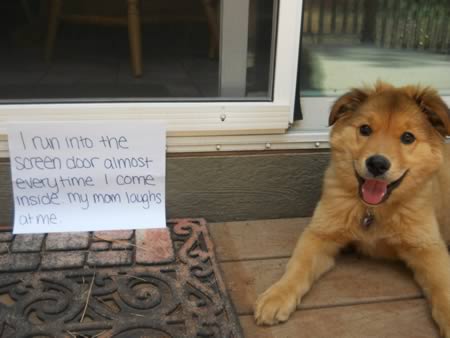 I run into the
screen door almost
everytime I come
inside. my mom laughs
at me.